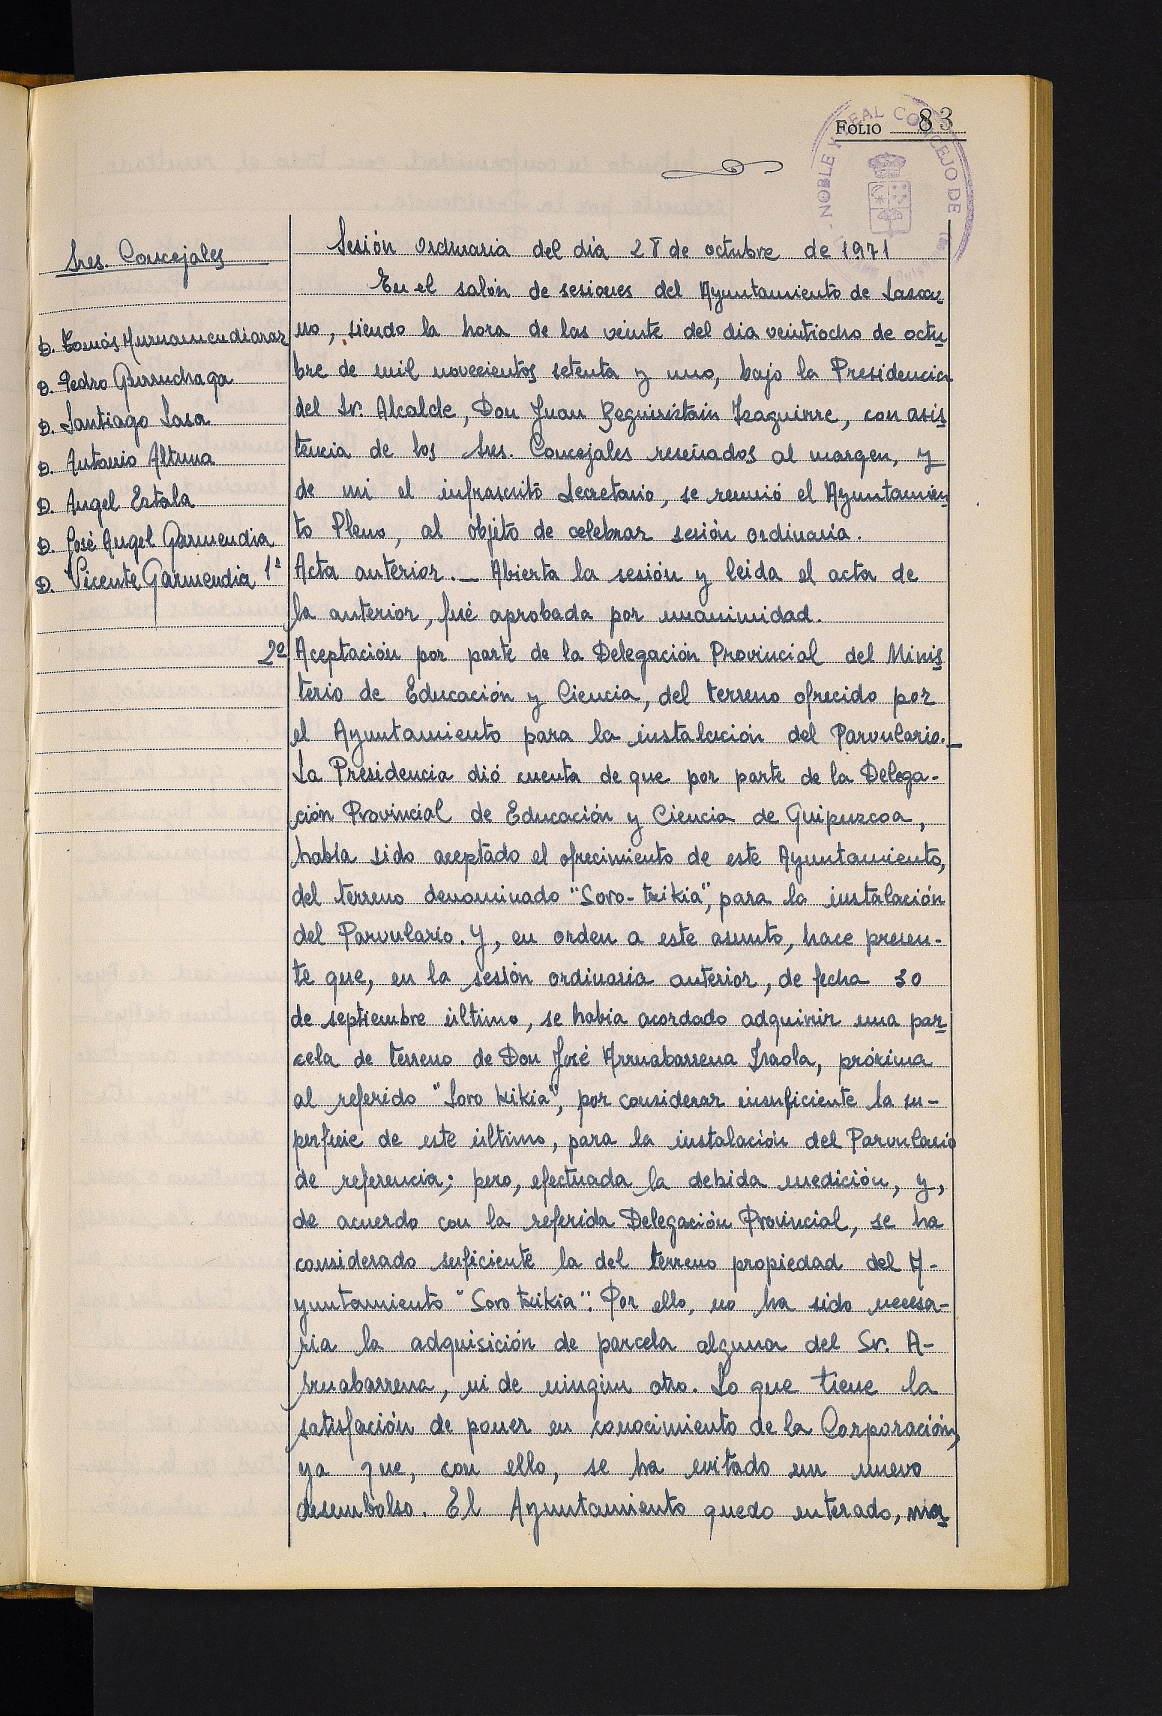 FOLIO 83
NOBLE Y REAL CONCEJO DE
Sres. Concejales
D. Tomás Murnamendiaraz
D. Pedro Gurruchaga
D. Santiago Lasa
D. Antonio Altuna
D. Angel Estala
D. José Angel Garmendia
D. Vicente Garmendia
Sesión ordinaria del dia 28 de octubre de 1971
En el salón de sesiones del Ayuntamiento de Lazca-
no, siendo la hora de las veinte del dia veintiocho de octu-
bre de mil novecientos setenta y uno, bajo la Presidencia
del Sr. Alcalde, Don Juan Beguiristain Izaguirre, con asis-
tencia de los Sres. Concejales reseñados al margen, y
de mi el infrascrito Secretario, se reunió el Ayuntamien-
to Pleno, al objeto de celebrar sesión ordinaria.
1ª Acta anterior._ Abierta la sesión y leida el acta de
la anterior, fué aprobada por unanimidad.
2º Aceptación por parte de la Delegación Provincial del Minis-
terio de Educación y Ciencia, del terreno ofrecido por
el Ayuntamiento para la instalación del Parvulario._
La Presidencia dió cuenta de que por parte de la Delega-
ción Provincial de Educación y Ciencia de Guipuzcoa,
habia sido aceptado el ofrecimiento de este Ayuntamiento,
del terreno denominado "Soro-txikia", para la instalación
del Parvulario. Y, en orden a este asunto, hace presen-
te que, en la sesión ordinaria anterior, de fecha 30
de septiembre último, se habia acordado adquirir una par-
cela de terreno de Don José Arruabarrena Iraola, próxima
al referido "Soro txikia", por considerar insuficiente la su-
perficie de este último, para la instalación del Parvulario
de referencia; pero, efectuada la debida medición, y,
de acuerdo con la referida Delegación Provincial, se ha
considerado suficiente la del terreno propiedad del A-
yuntamiento "Soro txikia". Por ello, no ha sido necesa-
ria la adquisición de parcela alguna del Sr. A-
rruabarrena, ni de ningún otro. Lo que tiene la
satisfación de poner en conocimiento de la Corporación,
ya que, con ello, se ha evitado un nuevo
desembolso. El Ayuntamiento quedo enterado,